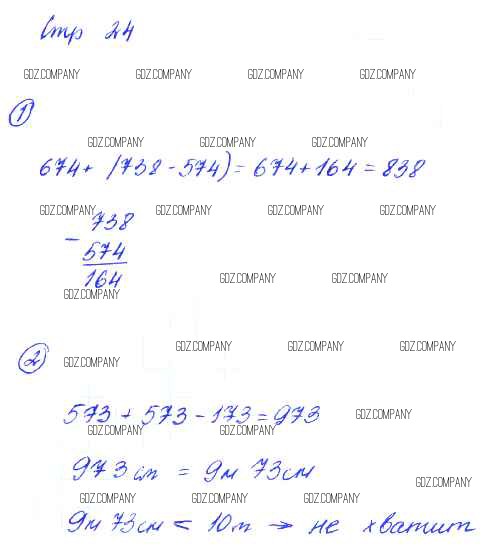 Стр 24
GDZ.COMPANY GDZ.COMPANY GDZ.COMPANY GDZ.COMPANY
1
GDZ.COMPANY GDZ.COMPANY GDZ.COMPANY
674 + (738 - 574) = 674 + 164 = 838
GDZ.COMPANY GDZ.COMPANY GDZ.COMPANY GDZ.COMPANY
- 738
574
164
GDZ.COMPANY GDZ.COMPANY GDZ.COMPANY
GDZ.COMPANY GDZ.COMPANY GDZ.COMPANY
2
GDZ.COMPANY
573 + 573 - 173 = 973
GDZ.COMPANY
GDZ.COMPANY GDZ.COMPANY
973 см = 9м 73 см
GDZ.COMPANY
GDZ.COMPANY GDZ.COMPANY GDZ.COMPANY
9м 73 см < 10 м → не хватит